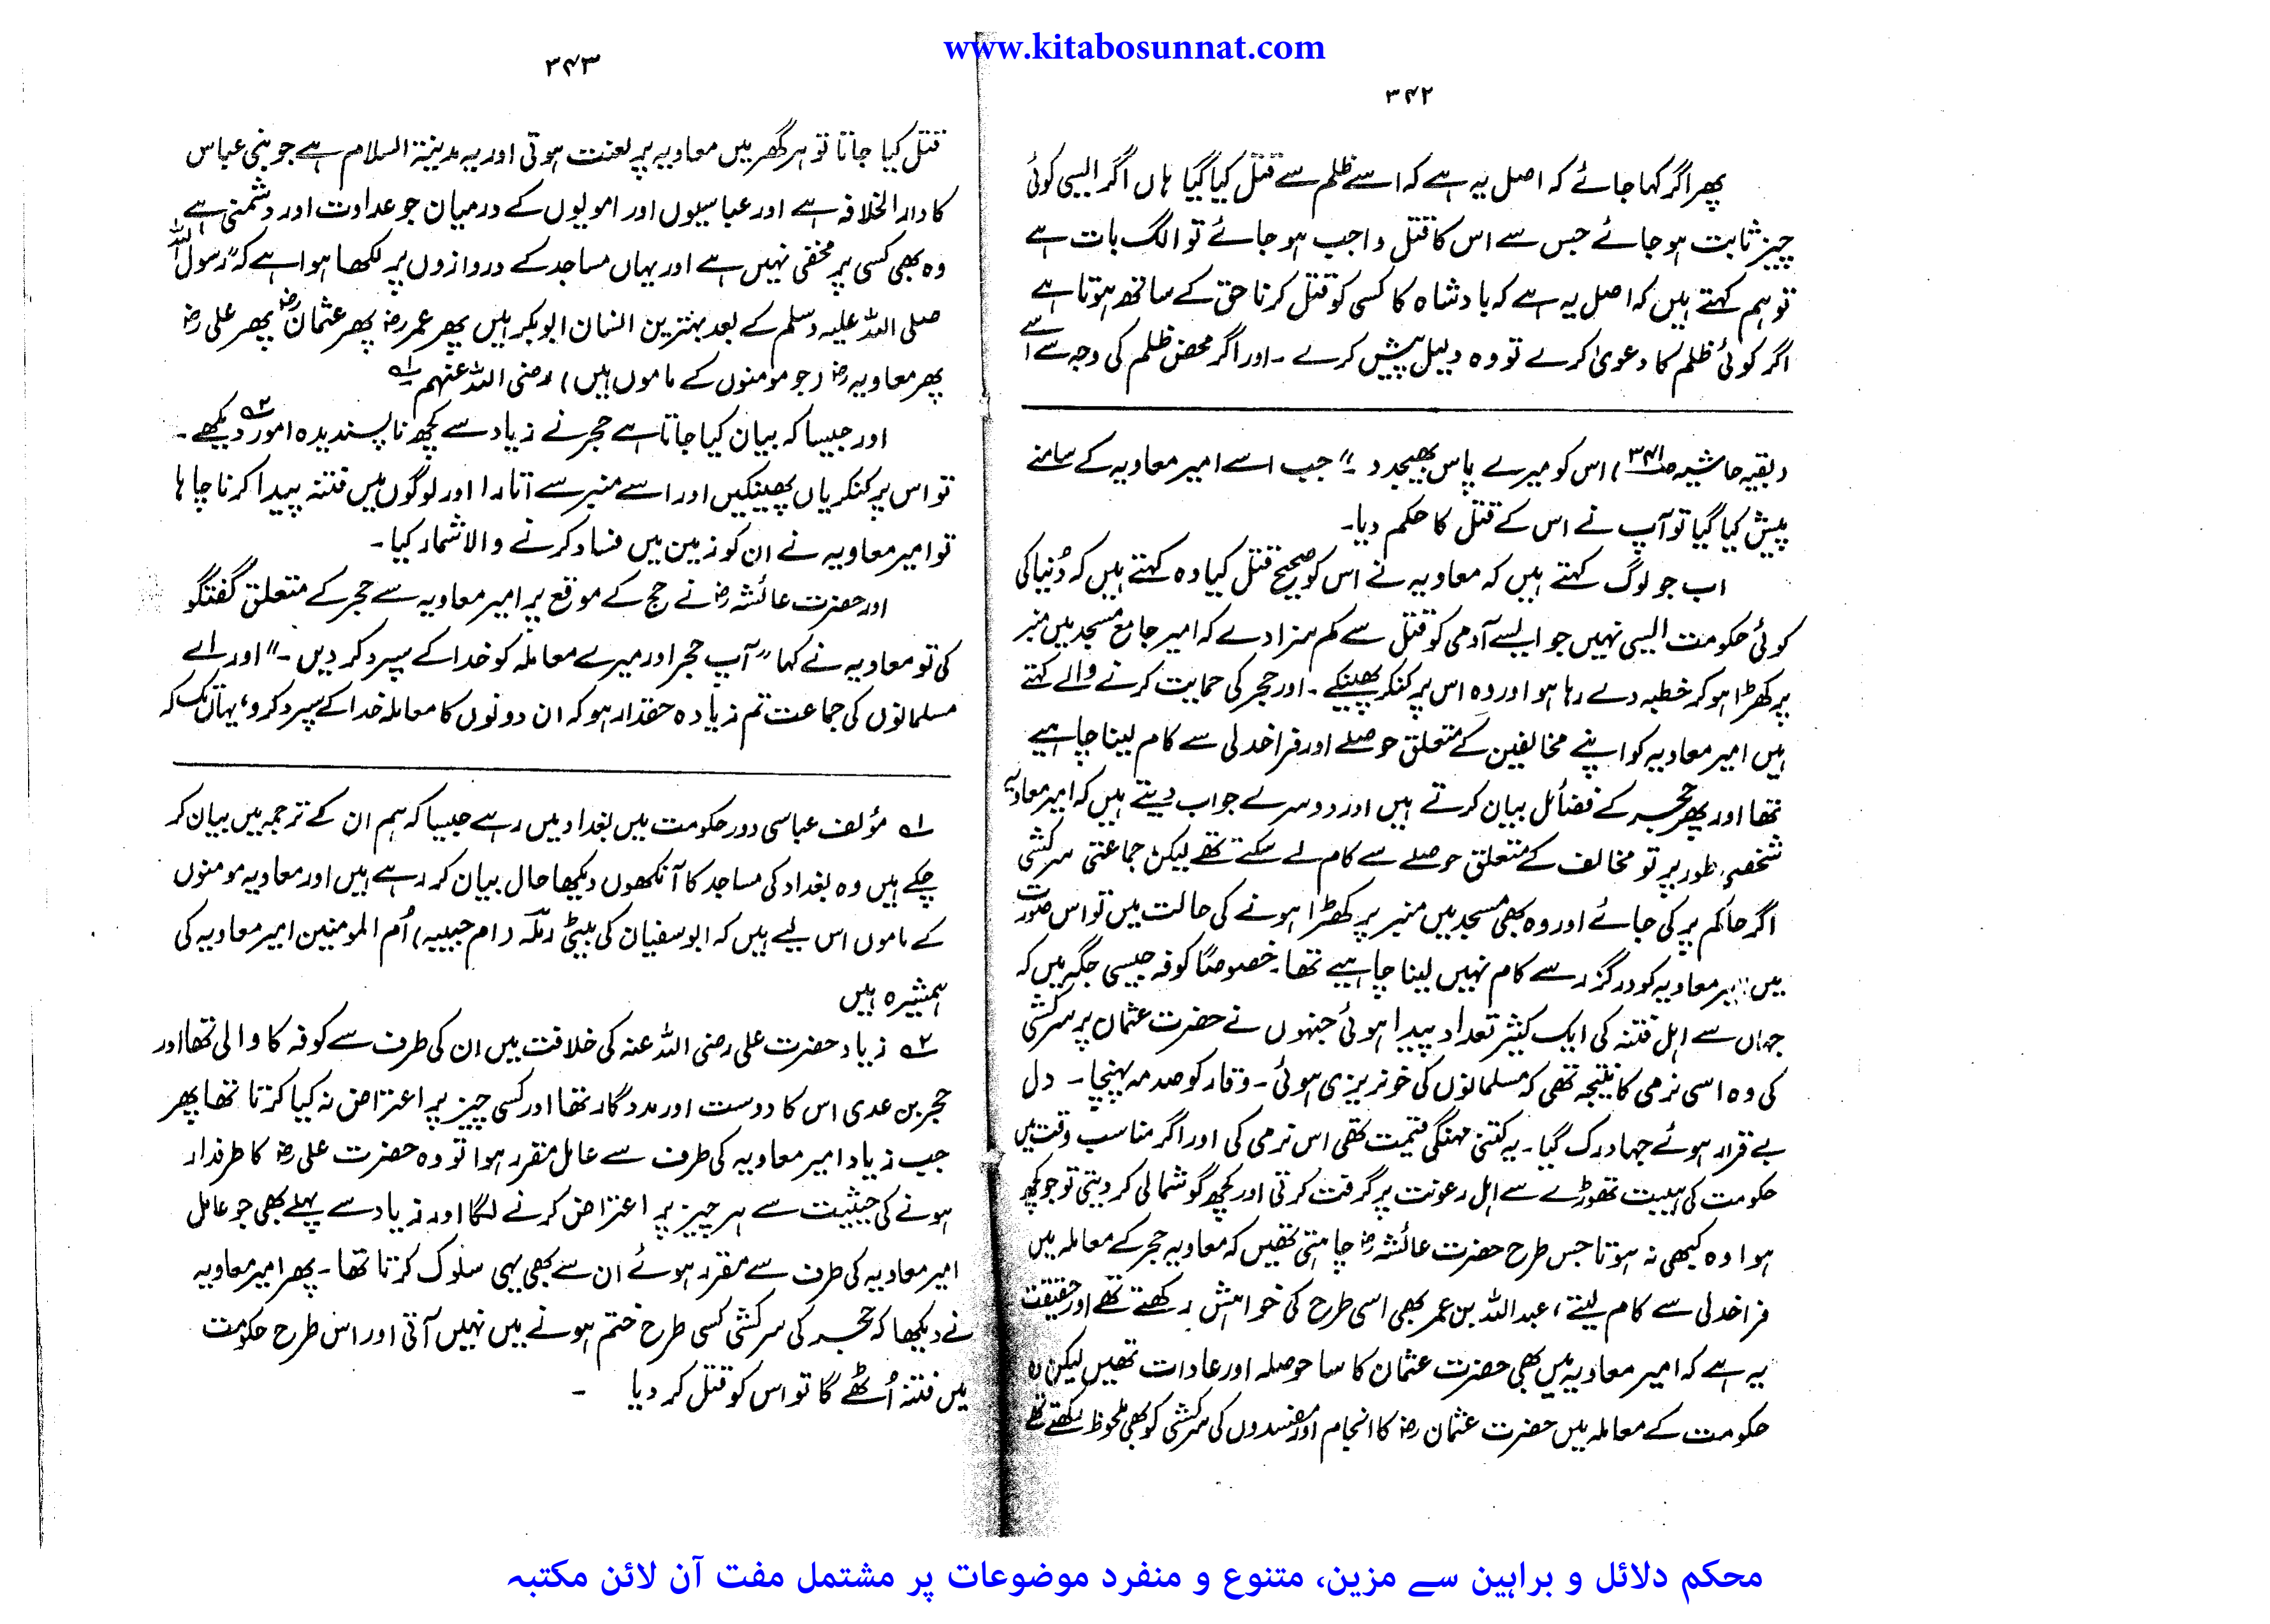 www.kitabosunnat.com
۳۴۲
پھر اگر کہا جائے کہ اصل یہ ہے کہ اسے ظلم سے قتل کیا گیا ہاں اگر ایسی کوئی
چیز ثابت ہو جائے جس سے اس کا قتل واجب ہو جائے تو الگ بات ہے
تو ہم کہتے ہیں کہ اصل یہ ہے کہ بادشاہ کا کسی کو قتل کرنا حق کے ساتھ ہوتا ہے
اگر کوئی ظلم کا دعویٰ کرے تو وہ دلیل پیش کرے ۔ اور اگر محض ظلم کی وجہ سے اسے
(بقیہ حاشیہ صـ۳۴۱) اس کو میرے پاس بھیجدو ۔" جب اسے امیر معاویہ کے سامنے
پیش کیا گیا تو آپ نے اس کے قتل کا حکم دیا۔
اب جو لوگ کہتے ہیں کہ معاویہ نے اس کو صحیح قتل کیا وہ کہتے ہیں کہ دُنیا کی
کوئی حکومت ایسی نہیں جو ایسے آدمی کو قتل سے کم سزا دے کہ امیر جامع مسجد میں منبر
پر کھڑا ہو کر خطبہ دے رہا ہو اور وہ اس پر کنکر پھینکے ۔ اور حجر کی حمایت کرنے والے کہتے
ہیں امیر معاویہ کو اپنے مخالفین کے متعلق حوصلے اور فراخدلی سے کام لینا چاہیے
تھا اور پھر حجر کے فضائل بیان کرتے ہیں اور دوسرے جواب دیتے ہیں کہ امیر معاویہ
شخصی طور پر تو مخالف کے متعلق حوصلے سے کام لے سکتے تھے لیکن جماعتی سرکشی
اگر حاکم پر کی جائے اور وہ بھی مسجد میں منبر پر کھڑا ہونے کی حالت میں تو اس صورت
میں امیر معاویہ کو درگزر سے کام نہیں لینا چاہیے تھا۔ خصوصًا کوفہ جیسی جگہ میں کہ
جہاں سے اہل فتنہ کی ایک کثیر تعداد پیدا ہوئی جنہوں نے حضرت عثمان پر سرکشی
کی وہ اسی نرمی کا نتیجہ تھی کہ مسلمانوں کی خونریزی ہوئی ۔ وقار کو صدمہ پہنچا ۔ دل
بے قرار ہوئے جہاد رک گیا ۔ یہ کتنی مہنگی قیمت تھی اس نرمی کی اور اگر مناسب وقت میں
حکومت کی ہیبت تھوڑے سے اہل رعونت پر گرفت کرتی اور کچھ گوشمالی کر دیتی تو جو کچھ
ہوا وہ کبھی نہ ہوتا جس طرح حضرت عائشہ رض چاہتی تھیں کہ معاویہ حجر کے معاملہ میں
فراخدلی سے کام لیتے، عبداللہ بن عمر بھی اسی طرح کی خواہش رکھتے تھے اور حقیقت
یہ ہے کہ امیر معاویہ میں بھی حضرت عثمان کا سا حوصلہ اور عادات تھیں لیکن وہ
حکومت کے معاملہ میں حضرت عثمان رض کا انجام اور مفسدوں کی سرکشی کو بھی ملحوظ رکھتے تھے
۳۴۳
قتل کیا جاتا تو ہر گھر میں معاویہ پر لعنت ہوتی اور یہ مدینۃ السلام ہے جو بنی عباس
کا دار الخلافہ ہے اور عباسیوں اور امویوں کے درمیان جو عداوت اور دشمنی ہے
وہ بھی کسی پر مخفی نہیں ہے اور یہاں مساجد کے دروازوں پر لکھا ہوا ہے کہ "رسول اللہ
صلی اللہ علیہ وسلم کے بعد بہترین انسان ابوبکر ہیں پھر عمر رض پھر عثمان رض پھر علی رض
پھر معاویہ رض (جو مومنوں کے ماموں ہیں) رضی اللہ عنہم ۱؎
اور جیسا کہ بیان کیا جاتا ہے حجر نے زیاد سے کچھ ناپسندیدہ امور ۲؎ دیکھے ۔
تو اس پر کنکریاں پھینکیں اور اسے منبر سے اتارا اور لوگوں میں فتنہ پیدا کرنا چاہا
تو امیر معاویہ نے ان کو زمین میں فساد کرنے والا شمار کیا ۔
اور حضرت عائشہ رض نے حج کے موقع پر امیر معاویہ سے حجر کے متعلق گفتگو
کی تو معاویہ نے کہا "آپ حجر اور میرے معاملہ کو خدا کے سپرد کر دیں ۔" اور اے
مسلمانوں کی جماعت تم زیادہ حقدار ہو کہ ان دونوں کا معاملہ خدا کے سپرد کرو، یہاں تک کہ
۱؎ مؤلف عباسی دور حکومت میں بغداد میں رہے جیسا کہ ہم ان کے ترجمہ میں بیان کر
چکے ہیں وہ بغداد کی مساجد کا آنکھوں دیکھا حال بیان کر رہے ہیں اور معاویہ مومنوں
کے ماموں اس لیے ہیں کہ ابو سفیان کی بیٹی رملہ (ام حبیبہ) اُم المومنین امیر معاویہ کی
ہمشیرہ ہیں
۲؎ زیاد حضرت علی رضی اللہ عنہ کی خلافت میں ان کی طرف سے کوفہ کا والی تھا اور
حجر بن عدی اس کا دوست اور مددگار تھا اور کسی چیز پر اعتراض نہ کیا کرتا تھا پھر
جب زیاد امیر معاویہ کی طرف سے عامل مقرر ہوا تو وہ حضرت علی رض کا طرفدار
ہونے کی حیثیت سے ہر چیز پر اعتراض کرنے لگا اور زیاد سے پہلے بھی جو عامل
امیر معاویہ کی طرف سے مقرر ہوئے ان سے بھی یہی سلوک کرتا تھا ۔ پھر امیر معاویہ
نے دیکھا کہ حجر کی سرکشی کسی طرح ختم ہونے میں نہیں آتی اور اس طرح حکومت
میں فتنہ اُٹھے گا تو اس کو قتل کر دیا ۔
محکم دلائل و براہین سے مزین، متنوع و منفرد موضوعات پر مشتمل مفت آن لائن مکتبہ